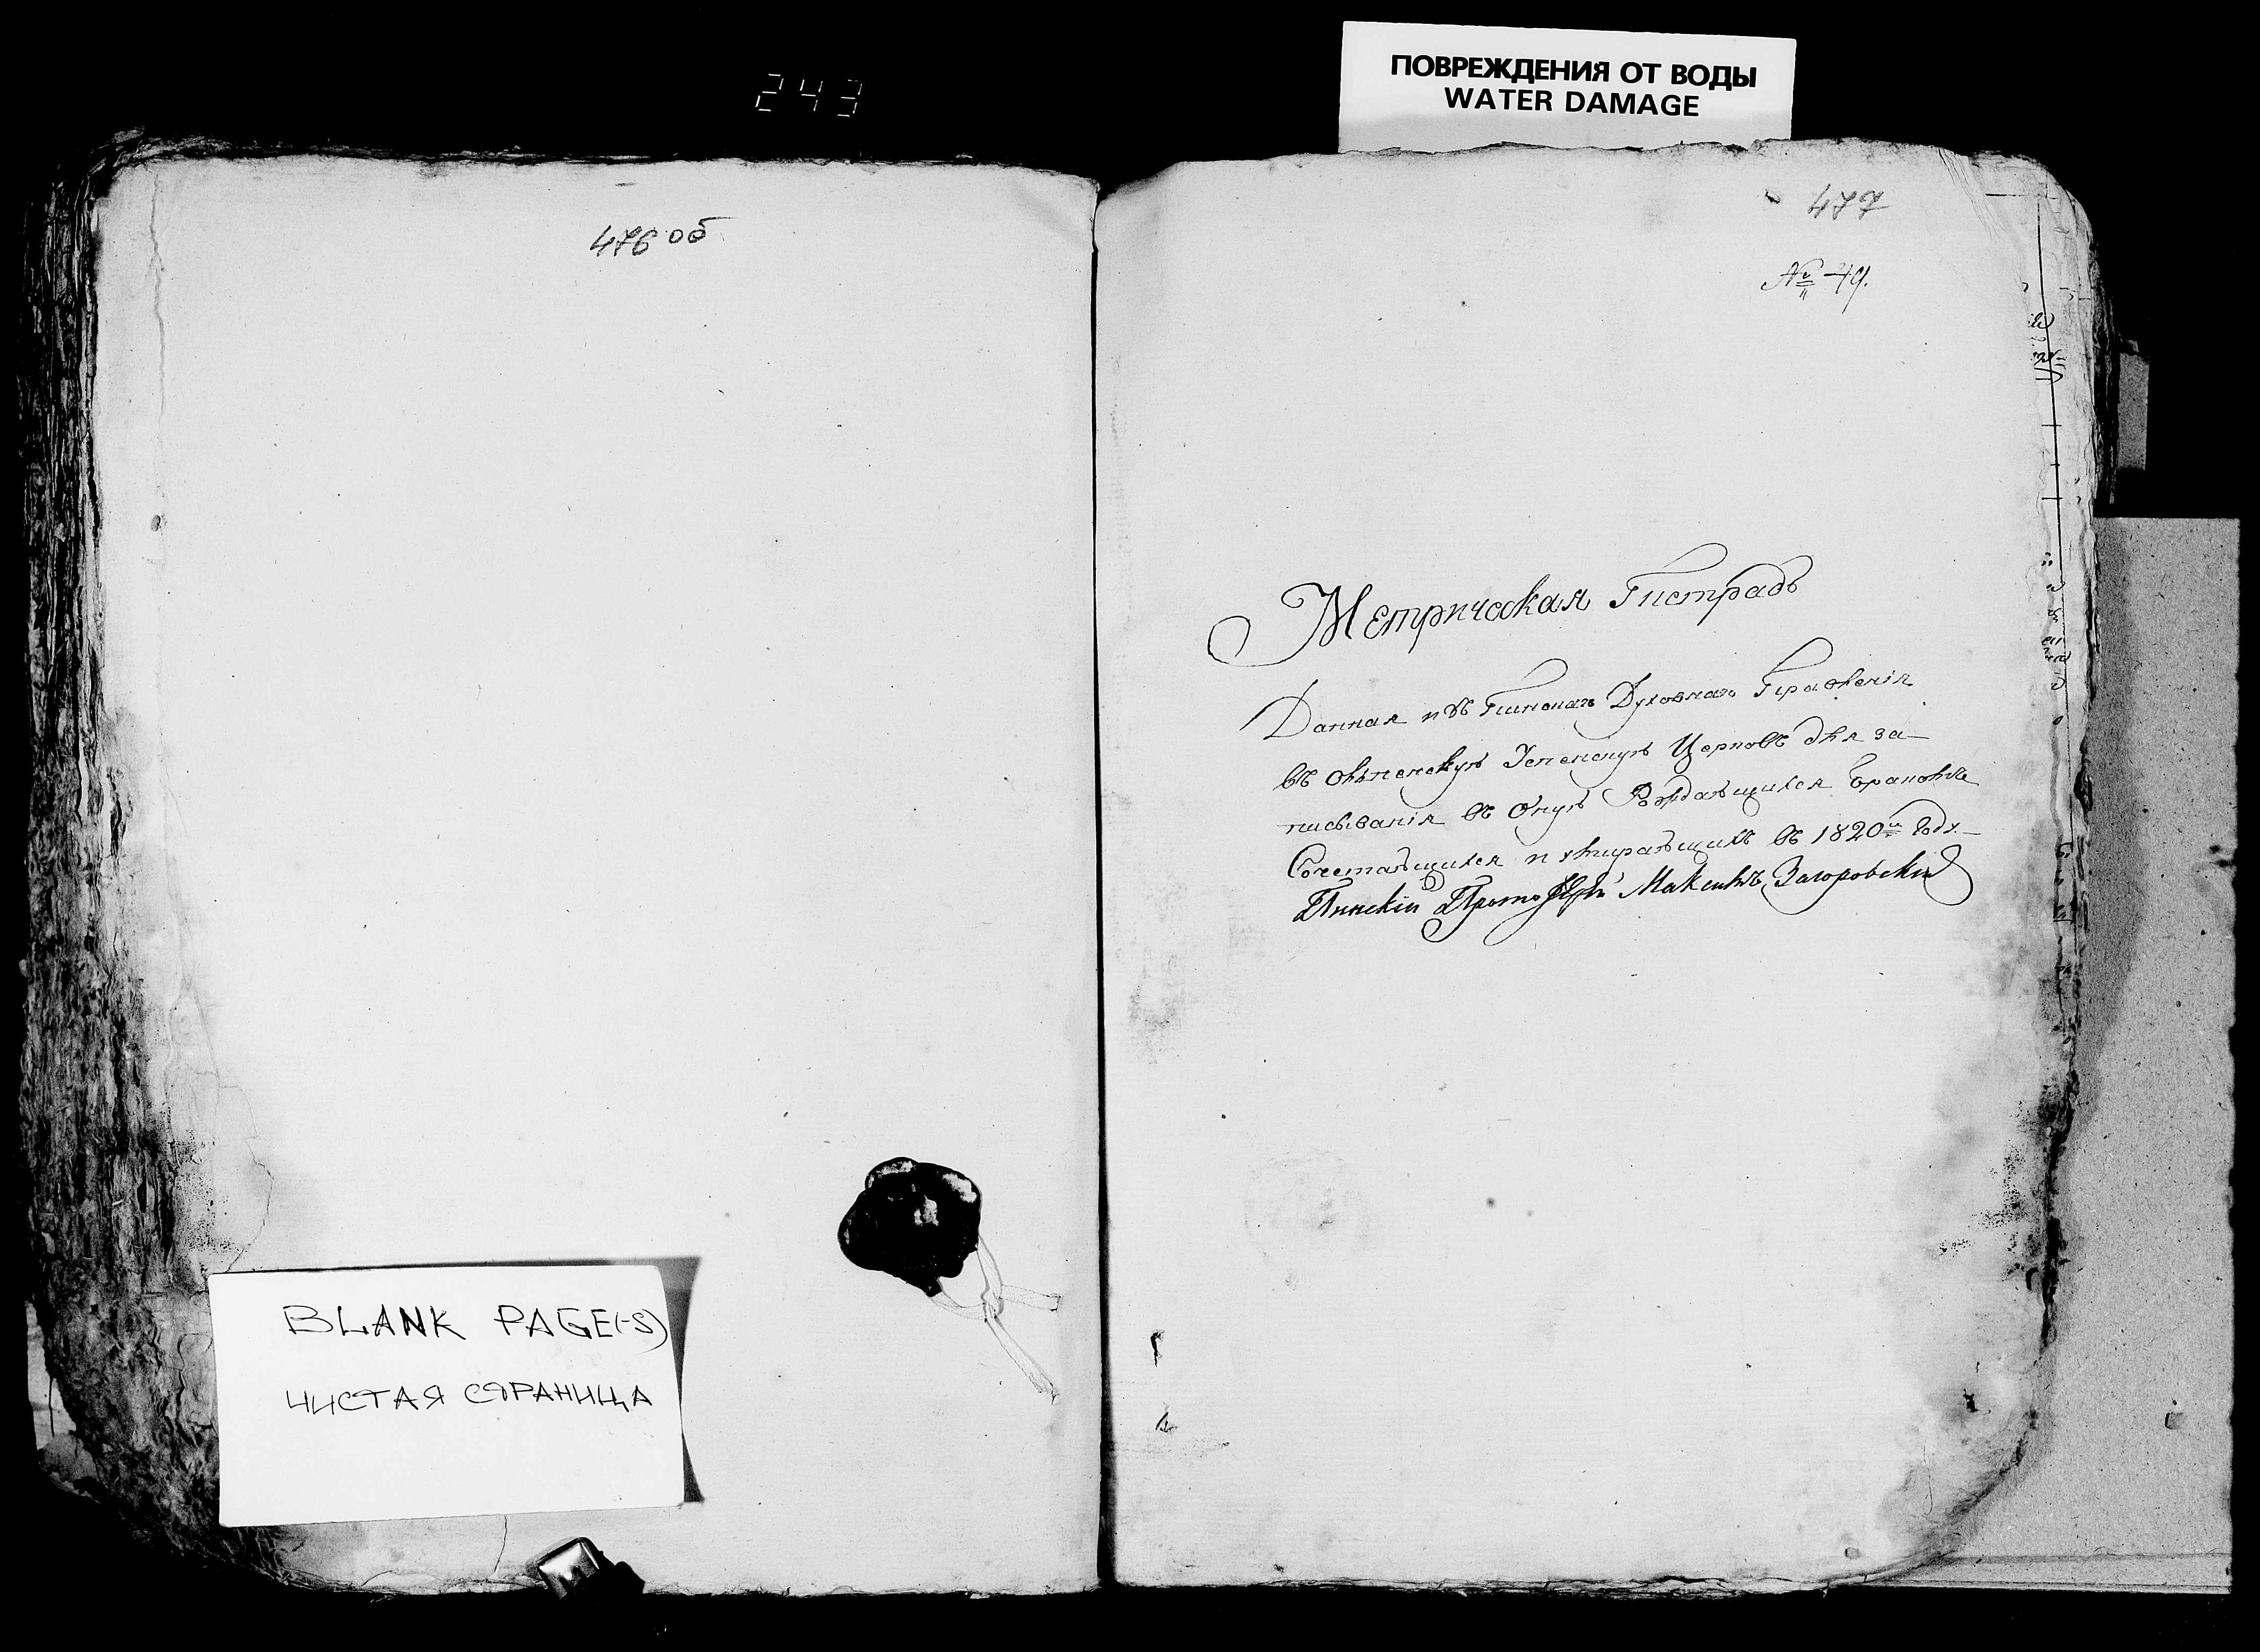 243
ПОВРЕЖДЕНИЯ ОТ ВОДЫ
WATER DAMAGE
476 об
BLANK PAGE(-S)
ЧИСТАЯ СТРАНИЦА
477
№ 49.
Метрическая Тетрадь
Данная изъ Пинскаго Духовнаго Правленія
въ Успенскую Церковь для за-
писыванія въ Оную Рождающихся Бракомъ
Сочетающихся и умирающихъ въ 1820м Году
Пинскій Максимъ Загоровскій